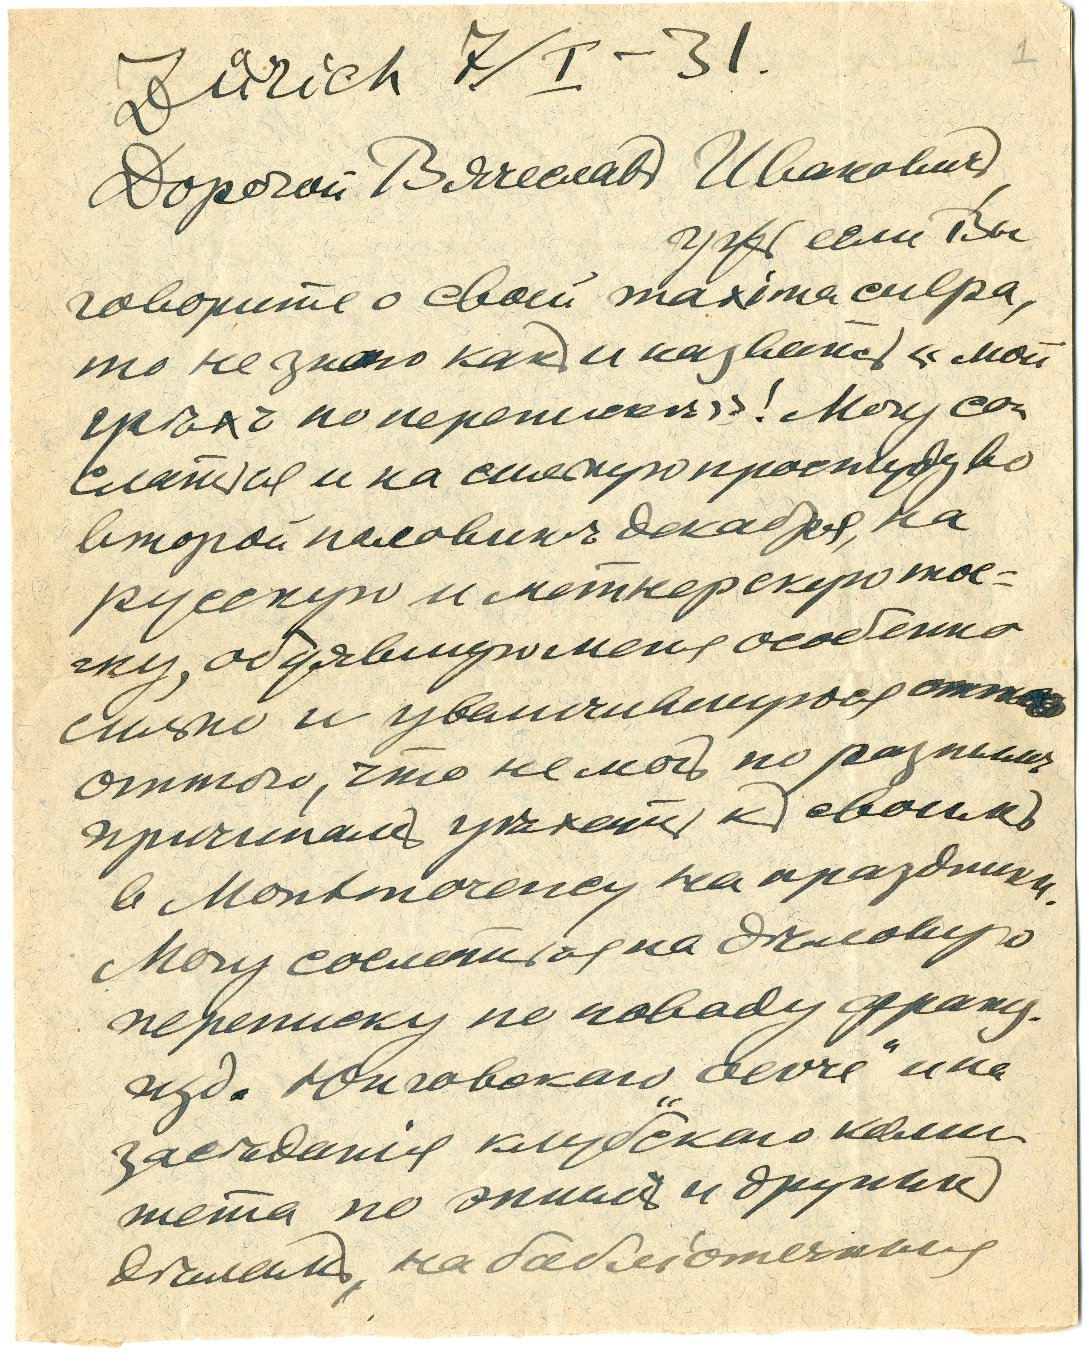 1
Zürich 7/I – 31.
Дорогой Вячеславъ Ивановичъ,
ужъ если Вы
говорите о своей maxima culpa,
то не знаю какъ и назвать «мой
грѣхъ по перепискѣ»! Могу со-
слаться и на сильную простуду во
второй половинѣ декабря, на
русскую и метнерскую тос-
ку, обуявшую меня особенно
сильно и увеличившуюся
оттого, что не могъ по разнымъ
причинамъ уѣхать къ своимъ
в Montmorency на праздники.
Могу сослаться на дѣловую
переписку по поводу франц.
изд. Юнговскаго „oeuvre“ и на
засѣданія клубскаго коми-
тета по этимъ и другимъ
дѣламъ, на библіотечныя